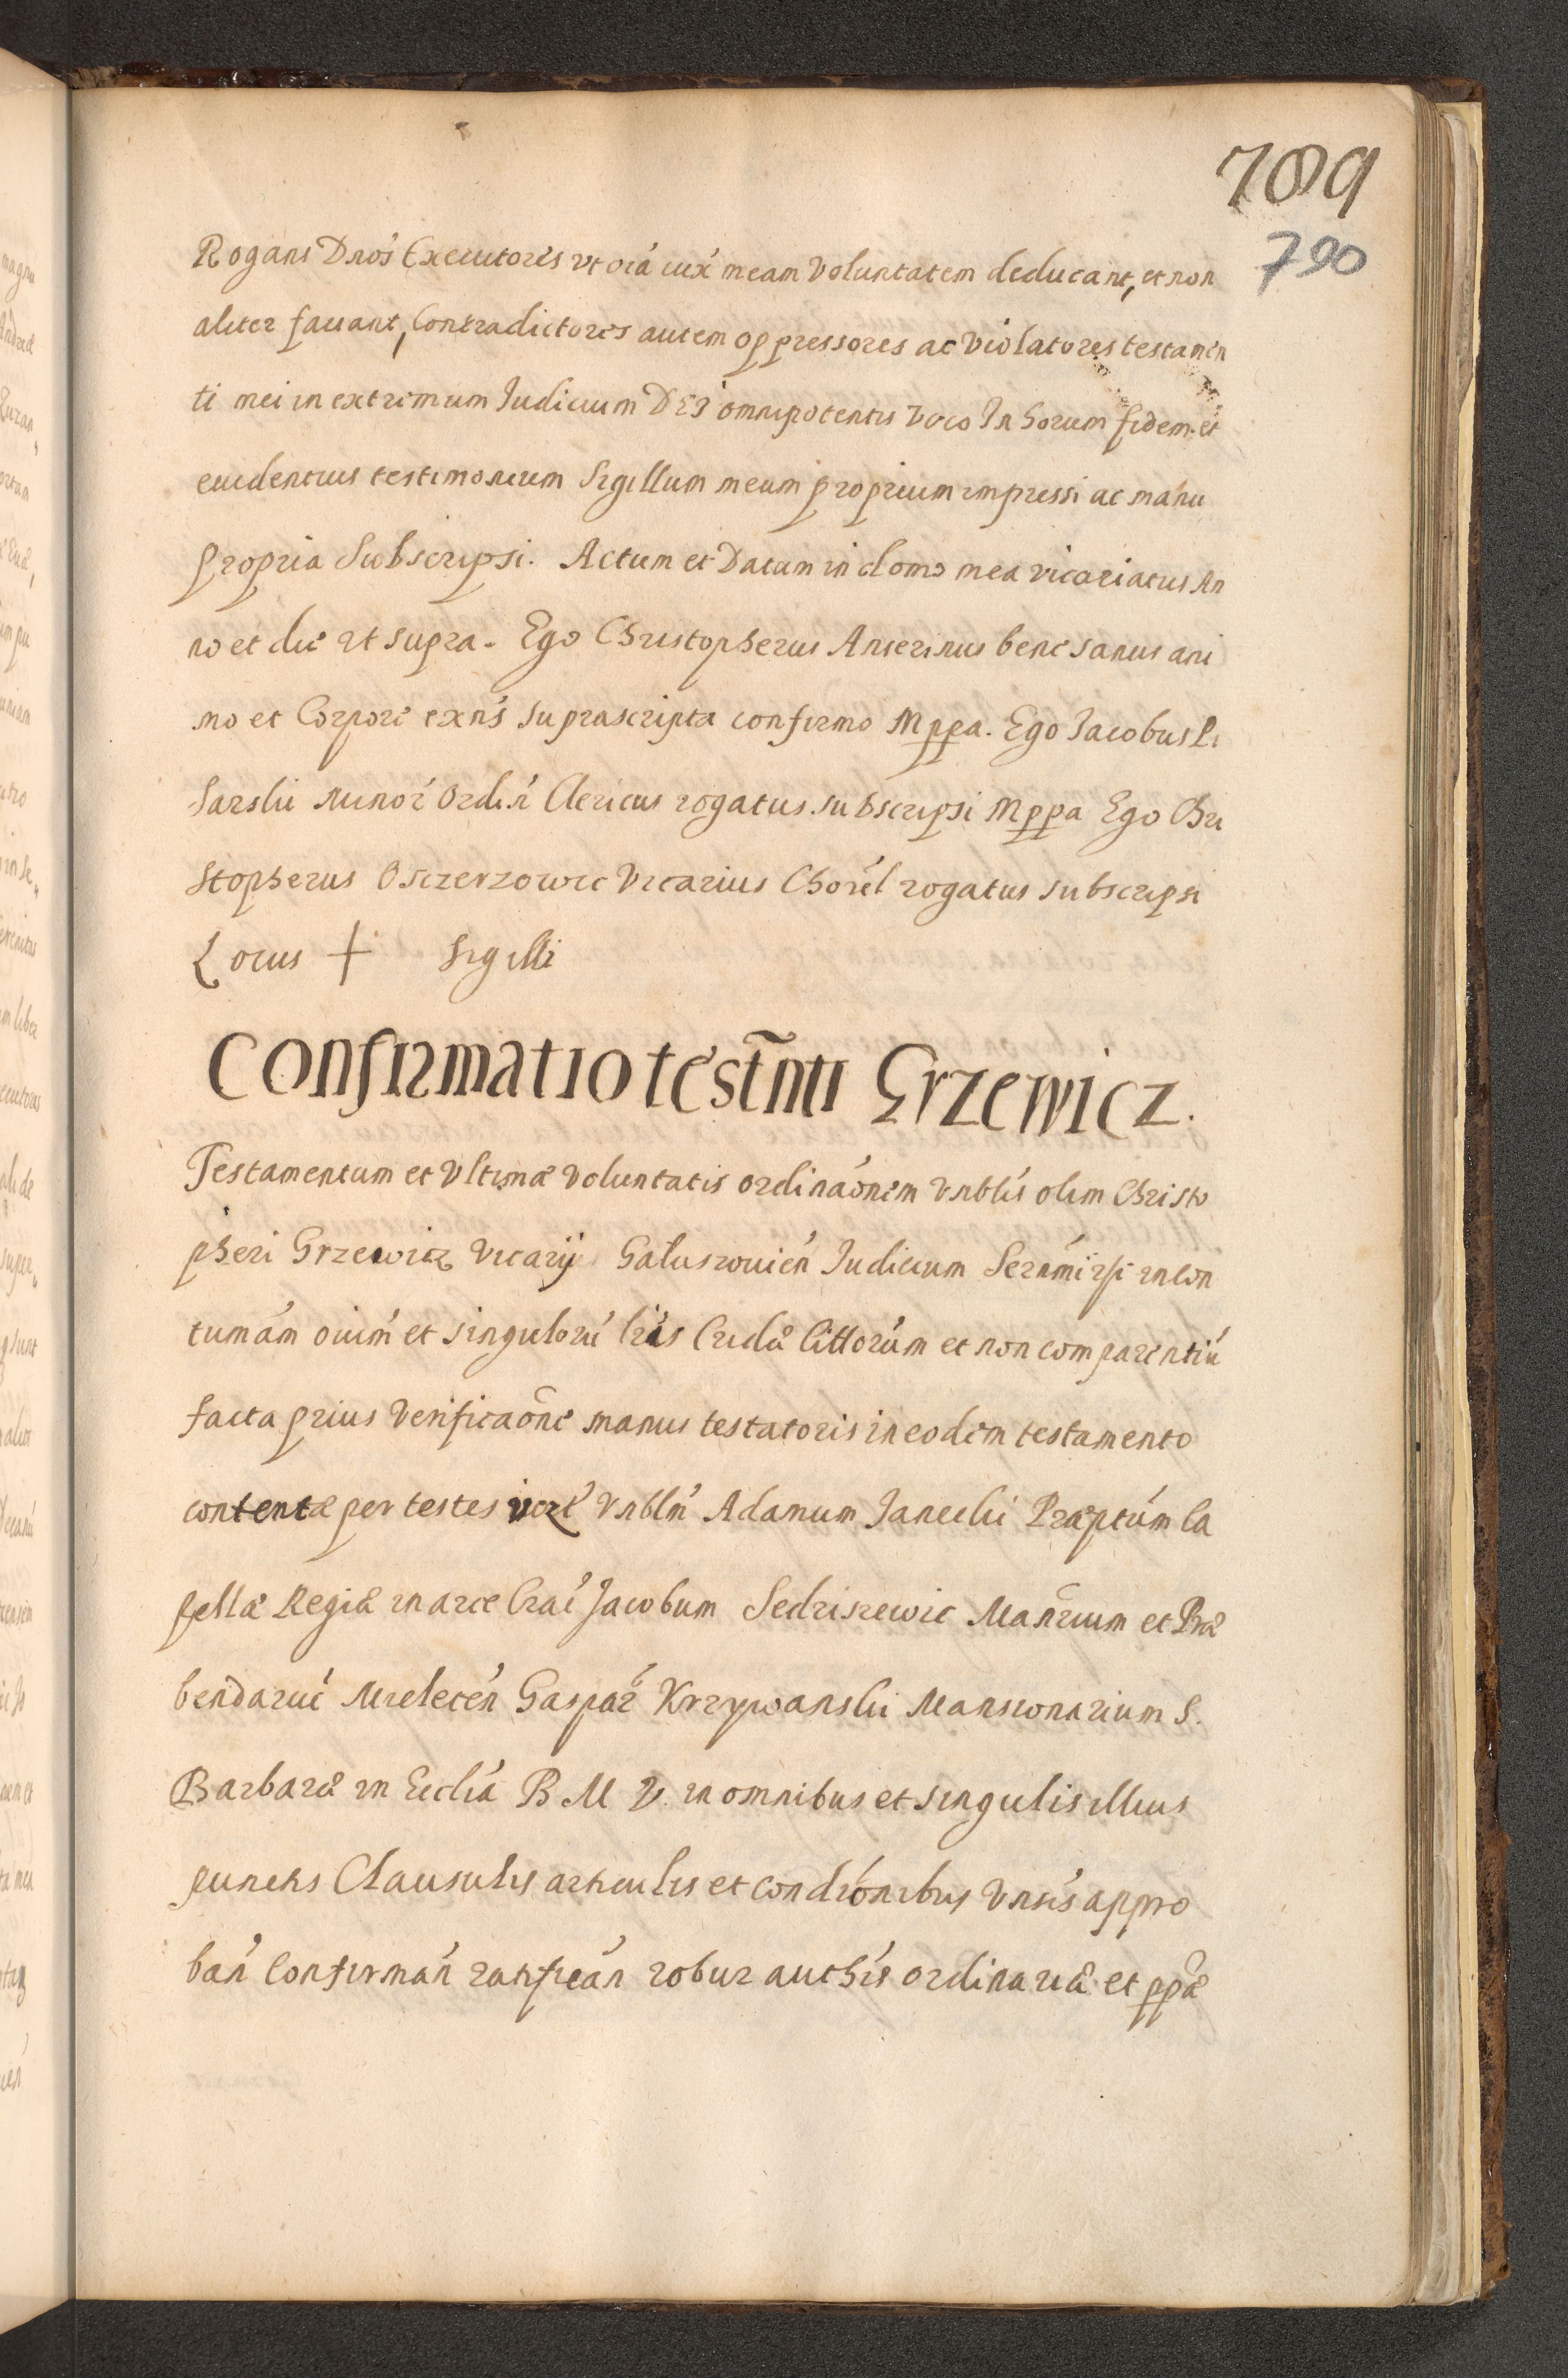 709
790
Rogans Dnos Executores vt oia iux meam Voluntatem deducant, et non
aliter faciant, Contradictores autem oppressores ac Violatores testamen
ti mei in extremum Iudicium DEI omnipotentis voco In horum fidem et
euidentius testimonium Sigillum meum proprium impressi ac manu
propria Subscripsi. Actum et Datum in domo mea vicariatus An
no et die vt supra. Ego Christopherus Anserinus bene sanus ani
mo et Corpore exns suprascripta confirmo Mppa. Ego Iacobus Pi
sarski Minor Ordin Clericus rogatus subscripsi Mppa Ego Chri
stopherus Vicarius Chorel rogatus subscripsi
Locus + Sigilli
Confirmatio testmti Grzewicz.
Testamentum et Vltimæ Voluntatis ordinaonem Vnblis olim Christo
pheri Grzewicz Vicarij Galuszouien Iudicium in con
tumam oium et singuloru et non comparentiu
facta prius Verificaone manus testatoris in eodem testamento
contentæ per testes Vnblm Adamum Janecki Præptum Ca
pellæ Regiæ in arce Crac Jacobum Sedriszewic Manrium et Præ
bendariu Mielecen Gaspar Krzywanski Mansionarium S.
Barbaræ in Ecclia B M V. in omnibus et singulis illius
punctis Clausulis articulis et condionibus Vnsis appro
ban Confirman ratifican robur authis ordinariæ et ppæ